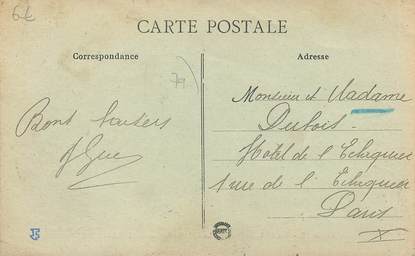 6€
CARTE POSTALE
Correspondance
Adresse
79
Bons baisers
Monsieur et Madame
Dubois.
Hotel de l'Echiquier
1 rue de l'Echiquier
Paris
X